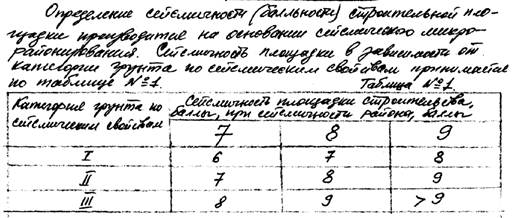 Определение сейсмичности (балльности) строительной пло-
щадки производится на основании сейсмического микро-
районирования. Сейсмичность площадки в зависимости от
категории грунта по сейсмическим свойствам принимается
по таблице №1.
Таблица №1
Категория грунта по сейсмическим свойствам
Сейсмичность площадки строительства, баллы, при сейсмичности района, баллы
7 8 9
I 6 7 8
II 7 8 9
III 8 9 >9